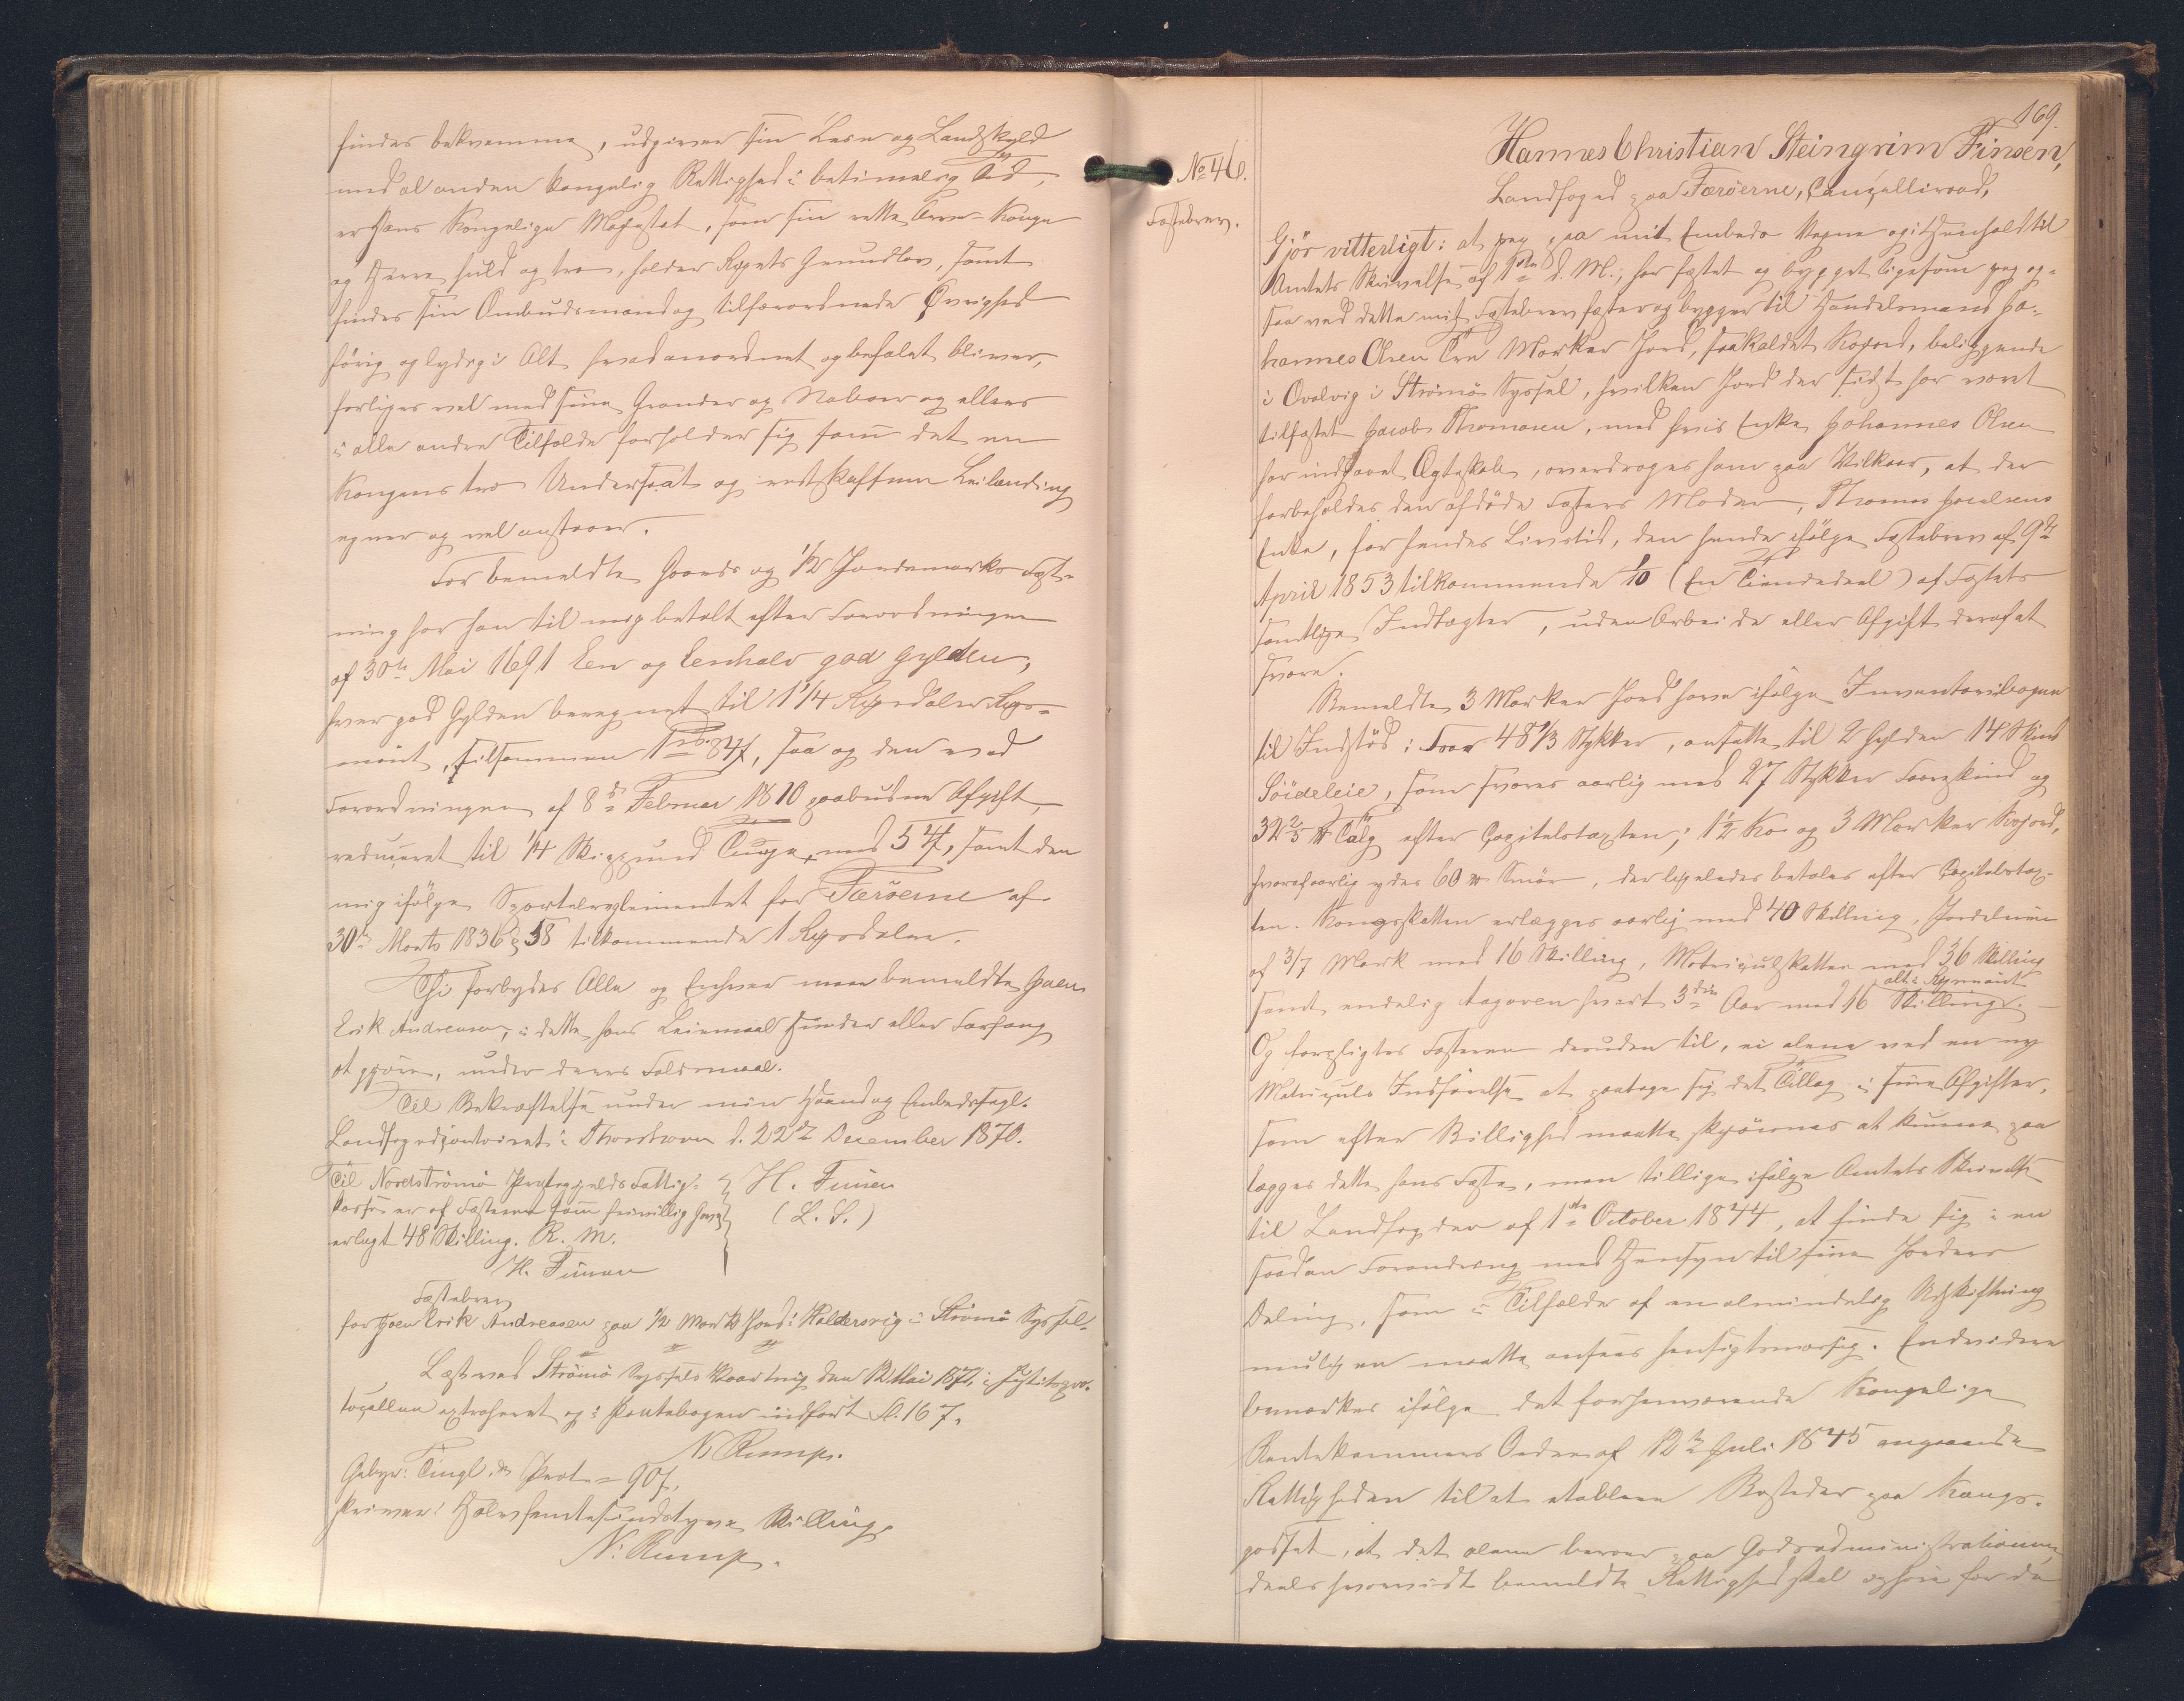 findes bekvemme, udgiver sin Leie og Landskyld
med al anden kongelig Rettighed i betimelig Tid,
er Hans Kongelige Majestæt, som sin rette Arve-Konge
og Herre huld og tro, holder Rigets Grundlov, samt
findes sin Ombudsmand og tilforordnede Øvrighed
hörig og lydig i Alt hvad anordnet og befalet bliver,
forliges vel med sine Grander og Naboer og ellers
i alle andre Tilfælde forholder sig som det en
Kongens tro Undersaat og retskaffen Leilænding
egner og vel anstaaer.
For bemeldte Gaards og 1/2 Jordemarks Fæst-
ning har han til mig betalt efter Forordningen
af 30te Mai 1691 Een og Eenhalv god Gylden,
hver god Gylden beregnet til 1 1/4 Rigsdaler Rigs-
mönt, tilsammen 1 rd. 84 s, saa og den ved
Forordningen af 8de Februar 1810 paabudne Afgift,
reduceret til 1/4 Skieppund Tunge, med 5 s, samt den
mig ifölge Sportelreglementet for Færöerne af
30te Marts 1836 § 58 tilkommende 1 Rigsdaler.
Thi forbydes Alle og Enhver meerbemeldte Joen
Erik Andreasen, i dette hans Leiemaal Hinder eller Forfang
at gjöre, under deres Faldsmaal.
Til Bekræftelse under min Haand og Embedssegl.
Landfogedcontoiret i Thorshavn d. 22de December 1870.
Til Nordströmö Præstegjelds Fattig- H. Finsen
kasse er af Fæsteren som frivillig Gave (L. S.)
erlagt 48 Skilling. R. M.
H. Finsen
Fæstebrev
for Joen Erik Andreasen paa 1/2 Mark Jord i Haldersvig i Strömö Syssel.
Læst ved Strömö Syssels Vaarting den 12 Mai 1871, i Justitspro-
tocollen extraheret og i Pantebogen indfört Fol. 167.
N. Rump.
Gebyr: Tingl. & Prot. = 90 s,
skriver: Halvfemtesindstyve Skilling.
N. Rump.
169.
No 46.
Fæstebrev.
Hannes Christian Steingrim Finsen,
Landfoged paa Færöerne, Cancelliraad,
Gjör vitterligt: at jeg paa mit Embeds Vegne og i Henhold til
Amtets Skrivelse af 1ste d. M., har fæstet og bygget ligesom jeg og-
saa ved dette mit Fæstebrev fæster og bygger til Handelsmand Jo-
hannes Olsen Tre Marker Jord, saakaldet Kojord, beliggende
i Qvalvig i Strömö Syssel, hvilken Jord der sidst har været
tilfæstet Jacob Thomasen, med hvis Enke Johannes Olsen
har indgaaet Ægteskab, overdrages ham paa Vilkaar, at der
forbeholdes den afdöde Fæsters Moder, Thomas Joensens
Enke, for hendes Livstid, den hende ifölge Fæstebrev af 9de
April 1853 tilkommende 1/10 (En Tiendedeel) af Fæstets
samtlige Indtægter, uden Arbeide eller Afgift deraf at
svare.
Bemeldte 3 Marker Jord have ifölge Inventariibogen
til Indstöd: Faar 48 1/3 Stykker, ansatte til 2 Gylden 14 Skind
Söideleie, som svares aarlig med 27 Stykker Faareskind og
32 2/5 ℔ Talg efter Capitelstaxten; 1 1/2 Ko og 3 Marker Kojord,
hvoraf aarlig ydes 60 ℔ Smör, der ligeledes betales efter Capitelstax-
ten. Kongsskatten erlægges aarlig med 40 Skilling, Jordeleien
af 3/7 Mark med 16 Skilling, Matriculskatten med 36 Skilling
samt endelig tagaven hvert 3die Aar med 16 Skilling. alt i Rigsmönt
Og forpligtes Fæsteren desuden til, ei alene ved en ny
Matriculs Indförelse at paatage sig det Tillæg i sine Afgifter,
som efter Billighed maatte skjönnes at kunne paa
lægges dette hans Fæste, men tillige ifölge Amtets Skrivelse
til Landfogden af 1ste October 1844, at finde sig i en
saadan Forandring med Hensyn til sine Jorders
Deling, som i Tilfælde af en almindelig Udskiftning
muligen maatte ansees hensigtsmæssig. Endvidere
bemærkes ifölge det forhenværende Kongelige
Rentekammers Ordre af 12te Juli 1845 angaaende
Rettigheden til at etablere Bosteder paa Kongs-
godset, at det alene beroer paa Godsadministrationen,
deels hvorvidt bemeldte Rettighed skal ophöre for de